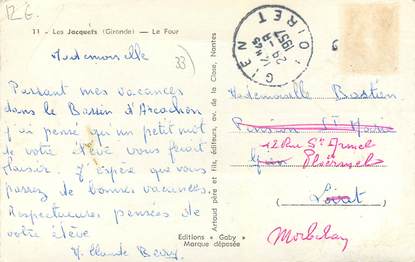 R.G.
11 - Les Jacquets (Gironde) - Le Four
33
Mademoiselle
Passant mes vacances
dans le Bassin d'Arcachon
j'ai pensé que un petit mot
de votre élève vous ferait
plaisir. J'espère que vous
passez de bonnes vacances.
Respectueuses pensées de
votre élève
Claude
Artaud père et Fils, éditeurs, av. de la Close, Nantes
Editions "Gaby"
Marque déposée
GIEN
LOIRET
1957
Mademoiselle Bastien
Pension St
12 Rue St Armel
Ploërmel
Morbihan